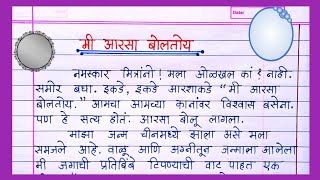 Date:
मी आरसा बोलतोय
नमस्कार मित्रांनो! मला ओळखल कां? नाही.
समोर बघा. इकडे, इकडे आरशाकडे "मी आरसा
बोलतोय." आमचा आमच्या कानांवर विश्वास बसेना.
पण हे सत्य होतं. आरसा बोलू लागला.
माझा जन्म चीनमध्ये झाला असे मला
समजने आहे. वाळू आणि अग्नीतून जन्माला आलेला
मी जगाची प्रतिबिंबे टिपण्याची वाट पाहत एक